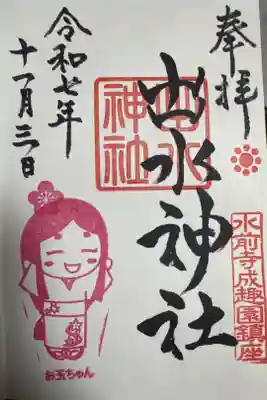 奉拝
水前寺成趣園鎮座
出水神社
出水
神社
令和七年
十一月三日
お玉ちゃん